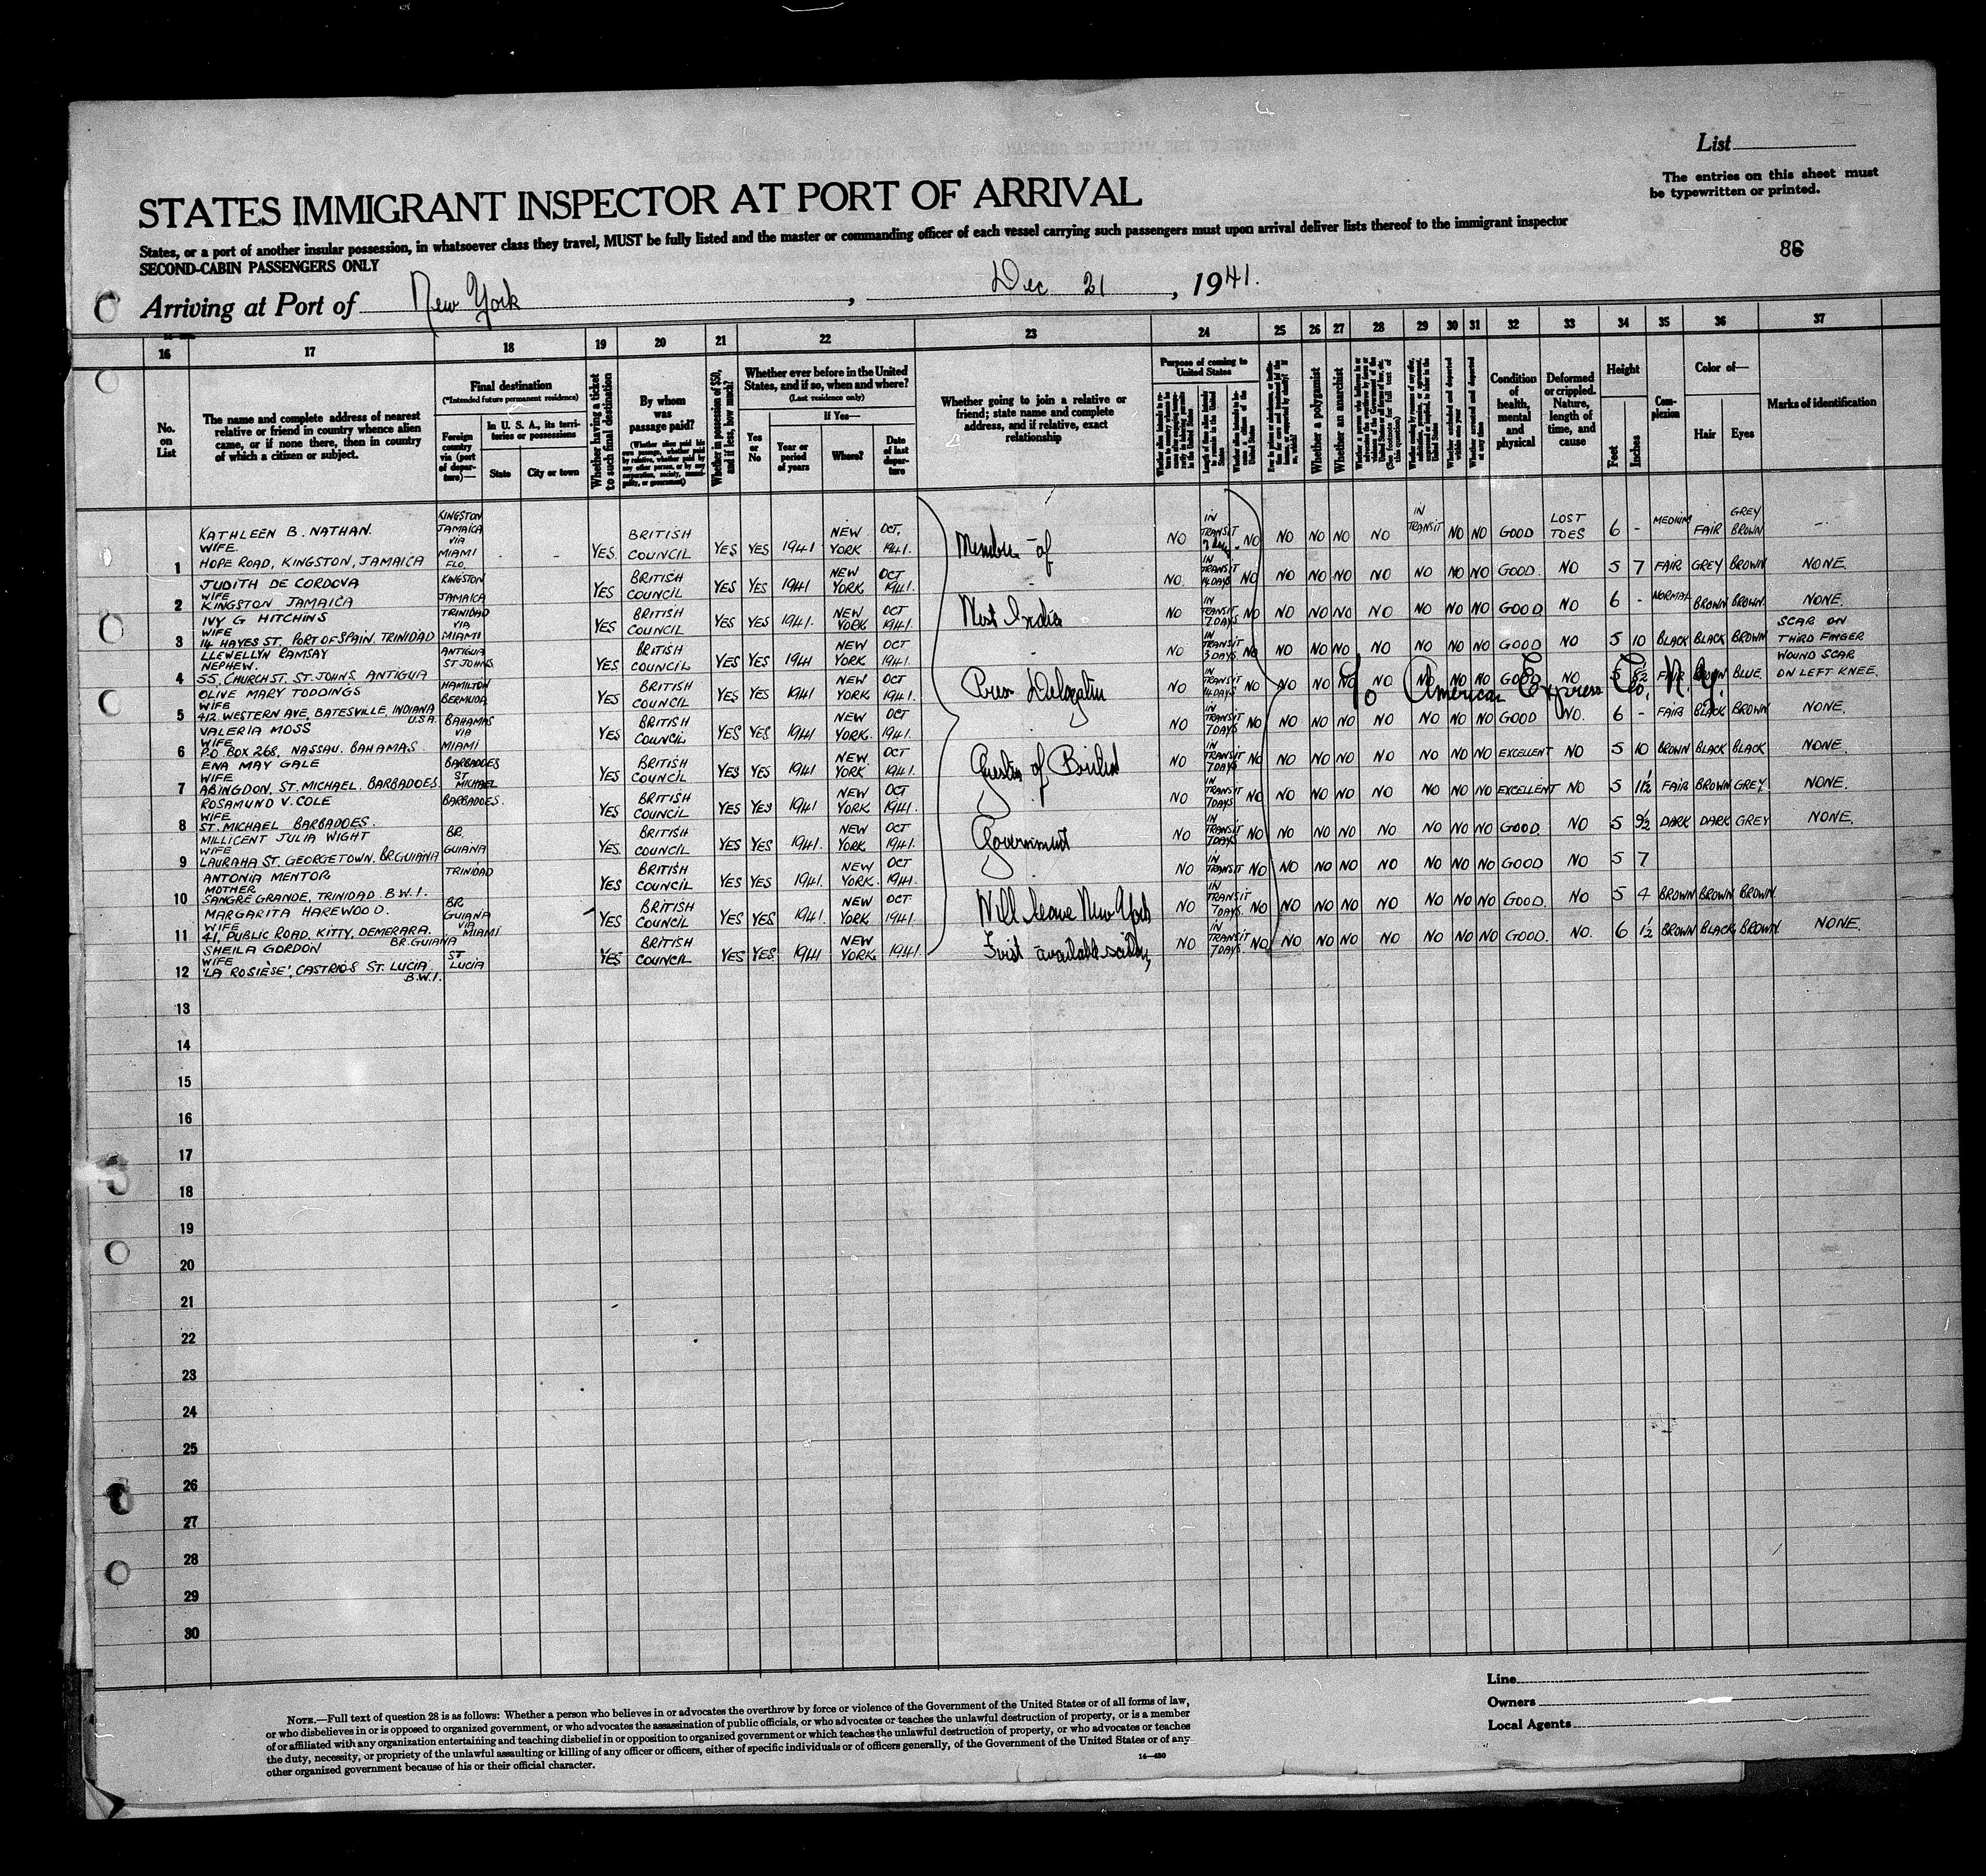 List
The entries on this sheet must
be typewritten or printed.
STATES IMMIGRANT INSPECTOR AT PORT OF ARRIVAL
States, or a port of another insular possession, in whatsoever class they travel, MUST be fully listed and the master or commanding officer of each vessel carrying such passengers must upon arrival deliver lists thereof to the immigrant inspector
SECOND-CABIN PASSENGERS ONLY
86
Arriving at Port of New York, Dec 21, 1941.
16 17 18 19 20 21 22 23 24 25 26 27 28 29 30 31 32 33 34 35 36 37
No. on List
The name and complete address of nearest relative or friend in country whence alien came, or if none there, then in country of which a citizen or subject.
Final destination
(*Intended future permanent residence)
Foreign country via (port of departure)—
In U. S. A., its territories or possessions
State
City or town
Whether having a ticket to such final destination
By whom was passage paid?
Whether in possession of $50, and if less, how much?
Whether ever before in the United States, and if so, when and where?
(Last residence only)
Yes or No
If Yes—
Year or period of years
Where?
Date of last departure
Whether going to join a relative or friend; state name and complete address, and if relative, exact relationship
Purpose of coming to United States
Whether a polygamist
Whether an anarchist
Condition of health, mental and physical
Deformed or crippled. Nature, length of time, and cause
Height
Feet
Inches
Complexion
Color of—
Hair
Eyes
Marks of identification
1 KATHLEEN B. NATHAN. WIFE. HOPE ROAD, KINGSTON, JAMAICA KINGSTON JAMAICA VIA MIAMI FLO. - - YES. BRITISH COUNCIL YES YES 1941 NEW YORK OCT, 1941. NO IN TRANSIT NO NO NO NO NO IN TRANSIT NO NO GOOD LOST TOES 6 - MEDIUM FAIR GREY BROWN -
2 JUDITH DE CORDOVA WIFE KINGSTON JAMAICA KINGSTON JAMAICA YES BRITISH COUNCIL YES YES 1941 NEW YORK OCT 1941. NO. IN TRANSIT 14 DAYS NO NO NO NO NO NO NO NO GOOD. NO 5 7 FAIR GREY BROWN NONE.
3 IVY G HITCHINS WIFE 14 HAYES ST. PORT OF SPAIN. TRINIDAD TRINIDAD VIA MIAMI YES BRITISH COUNCIL YES YES 1941. NEW YORK OCT 1941. NO IN TRANSIT 7 DAYS NO NO NO NO NO NO NO NO GOOD NO 6 - NORMAL BROWN BROWN. NONE.
4 LLEWELLYN RAMSAY NEPHEW. 55, CHURCH ST. ST. JOHNS, ANTIGUA ANTIGUA ST JOHNS YES BRITISH COUNCIL YES YES 1941 NEW YORK OCT 1941. NO IN TRANSIT 3 DAYS NO NO NO NO NO NO NO NO GOOD NO 5 10 BLACK BLACK BROWN SCAR ON THIRD FINGER
5 OLIVE MARY TODDINGS WIFE 412 WESTERN AVE, BATESVILLE, INDIANA U.S.A. HAMILTON BERMUDA YES BRITISH COUNCIL YES YES 1941 NEW YORK OCT 1941. NO IN TRANSIT 14 DAYS NO NO NO NO NO NO NO NO GOOD NO 5 FAIR BROWN BLUE. WOUND SCAR ON LEFT KNEE.
6 VALERIA MOSS WIFE P.O. BOX 268. NASSAU. BAHAMAS. BAHAMAS VIA MIAMI YES BRITISH COUNCIL YES YES 1941 NEW YORK. OCT 1941. NO IN TRANSIT 7 DAYS NO NO NO NO NO NO NO NO GOOD NO. 6 - FAIR BLACK BROWN NONE.
7 ENA MAY GALE WIFE ABINGDON, ST. MICHAEL. BARBADOES. BARBADOES ST MICHAEL YES BRITISH COUNCIL YES YES 1941 NEW YORK. OCT 1941 NO IN TRANSIT 7 DAYS NO NO NO NO NO NO NO NO EXCELLENT NO 5 10 BROWN BLACK BLACK NONE.
8 ROSAMUND V. COLE WIFE ST. MICHAEL BARBADOES. BARBADOES. YES BRITISH COUNCIL YES YES 1941 NEW YORK OCT 1941. NO IN TRANSIT 7 DAYS NO NO NO NO NO NO NO NO EXCELLENT NO 5 11½ FAIR BROWN GREY. NONE.
9 MILLICENT JULIA WIGHT WIFE LAURAHA ST. GEORGETOWN. BR GUIANA BR. GUIANA YES. BRITISH COUNCIL YES YES 1941. NEW YORK OCT 1941. NO IN TRANSIT 7 DAYS NO NO NO NO NO NO NO NO GOOD. NO 5 9½ DARK DARK GREY NONE.
10 ANTONIA MENTOR MOTHER SANGRE GRANDE, TRINIDAD B.W.I. TRINIDAD YES BRITISH COUNCIL YES YES 1941. NEW YORK. OCT 1941. NO IN TRANSIT NO NO NO NO NO NO NO NO GOOD NO 5 7
11 MARGARITA HAREWOOD. WIFE 41, PUBLIC ROAD. KITTY, DEMERARA. BR. GUIANA BR GUIANA VIA MIAMI YES BRITISH COUNCIL YES YES 1941. NEW YORK OCT 1941. NO IN TRANSIT 7 DAYS. NO NO NO NO NO NO NO NO GOOD. NO 5 4 BROWN BROWN BROWN.
12 SHEILA GORDON WIFE 'LA ROSIESE', CASTRIES ST. LUCIA. B.W.I. ST. LUCIA YES BRITISH COUNCIL YES YES. 1941 NEW YORK. 1941. NO IN TRANSIT 7 DAYS. NO NO NO NO NO NO NO NO GOOD. NO. 6 ½ BROWN BLACK BROWN. NONE.
Member of
West India
Press Delegation
Guests of British
Government
Will leave New York
First available sailing
c/o American Express Co., N.Y.
13
14
15
16
17
18
19
20
21
22
23
24
25
26
27
28
29
30
Line
Owners
Local Agents
NOTE.—Full text of question 28 is as follows: Whether a person who believes in or advocates the overthrow by force or violence of the Government of the United States or of all forms of law,
or who disbelieves in or is opposed to organized government, or who advocates the assassination of public officials, or who advocates or teaches the unlawful destruction of property, or is a member
of or affiliated with any organization entertaining and teaching disbelief in or opposition to organized government or which teaches the unlawful destruction of property, or who advocates or teaches
the duty, necessity, or propriety of the unlawful assaulting or killing of any officer or officers, either of specific individuals or of officers generally, of the Government of the United States or of any
other organized government because of his or their official character.
14—430